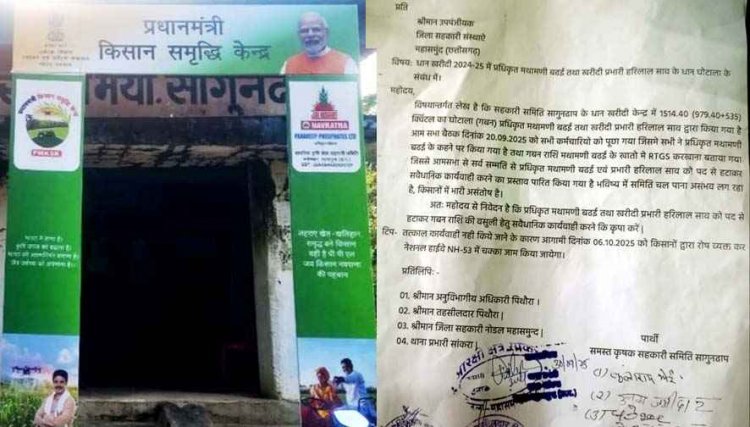 प्रधानमंत्री
किसान समृद्धि केन्द्र
मर्या. सागुनढा
PMKSK
NAVRATNA
PARADEEP PHOSPHATES LTD
लहराए खेत-खलिहान,
समृद्ध बने किसान
यही है पी पी एल
जय किसान नवरत्ना
की पहचान
प्रति
श्रीमान उपपंजीयक
जिला सहकारी संस्थाऐ
महासमुंद (छत्तीसगढ़)
विषय: धान खरीदी 2024-25 में प्रधिकृत मथामणी बढई तथा खरीदी प्रभारी हरिलाल साव के धान घोटाला के
संबंध में।
महोदय,
विषयान्तर्गत लेख है कि सहकारी समिति सागुनढाप के धान खरीदी केन्द्र में 1514.40 (979.40+535)
क्विंटल का घोटाला (गबन) प्रधिकृत मथामणी बढई तथा खरीदी प्रभारी हरिलाल साव द्वारा किया गया है
आम सभा बैठक दिनांक 20.09.2025 को सभी कर्मचारियो को पूछा गया जिसमे सभी ने प्रधिकृत मथामणी
बढई के कहने पर किया गया है तथा गबन राशि मथामणी बढई के खातो मे RTGS करवाना बताया गया
जिससे आमसभा से सर्व सम्मति से प्रधिकृत मथामणी बढई एवं प्रभारी हरिलाल साव को पद से हटाकर
सवैधानिक कार्यवाही करने का प्रस्ताव पारित किया गया है भविष्य में समिति चल पाना असंभव लग रहा
है, किसानों में भारी असंतोष है।
अतः महोदय से निवेदन है कि प्रधिकृत मथामणी बढई तथा खरीदी प्रभारी हरिलाल साव को पद से
हटाकर गबन राशि की वसुली हेतु सवैधानिक कार्यवाही करने कि कृपा करें।
टिप- तत्काल कार्यवाही नही किये जाने के कारण आगामी दिनांक 06.10.2025 को किसानों द्वारा रोष व्यक्त कर
नेशनल हाईवे NH-53 में चक्का जाम किया जायेगा।
प्रतिलिपि: -
01. श्रीमान अनुविभागीय अधिकारी पिथौरा।
02. श्रीमान तहसीलदार पिथौरा।
03. श्रीमान जिला सहकारी नोडल महासमुन्द।
04. थाना प्रभारी सांकरा।
प्रार्थी
समस्त कृषक सहकारी समिति सागुनढाप
(1)
(2)
(3)